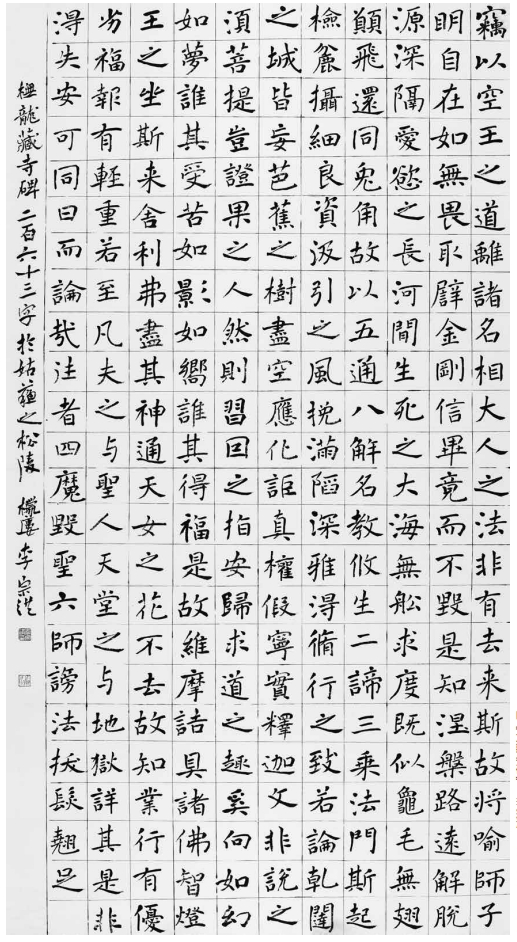 竊以空王之道離諸名相大人之法非有去来斯故将喻師子
明自在如無畏取辟金剛信畢竟而不毀是知涅槃路遠解脫
源深隔愛慾之長河間生死之大海無舩求度既似龜毛無翅
顛飛還同兎角故以五通八解名教攸生二諦三乘法門斯起
檢麁攝細良資汲引之風挽滿陷深雅淂循行之致若論乹闥
之城皆妄芭蕉之樹盡空應化詎真權假寧實釋迦文非說之
湏菩提豈證果之人然則習因之指安歸求道之趣奚向如幻
如夢誰其受苦如影如嚮誰其得福是故維摩詰具諸佛智燈
王之坐斯来舍利弗盡其神通天女之花不去故知業行有優
劣福報有輕重若至凡夫之与聖人天堂之与地獄詳其是非
淂失安可同曰而論哉注者四魔毀聖六師謗法拔髮翹足
橅龍藏寺碑二百六十三字於姑蘓之松陵 李宗